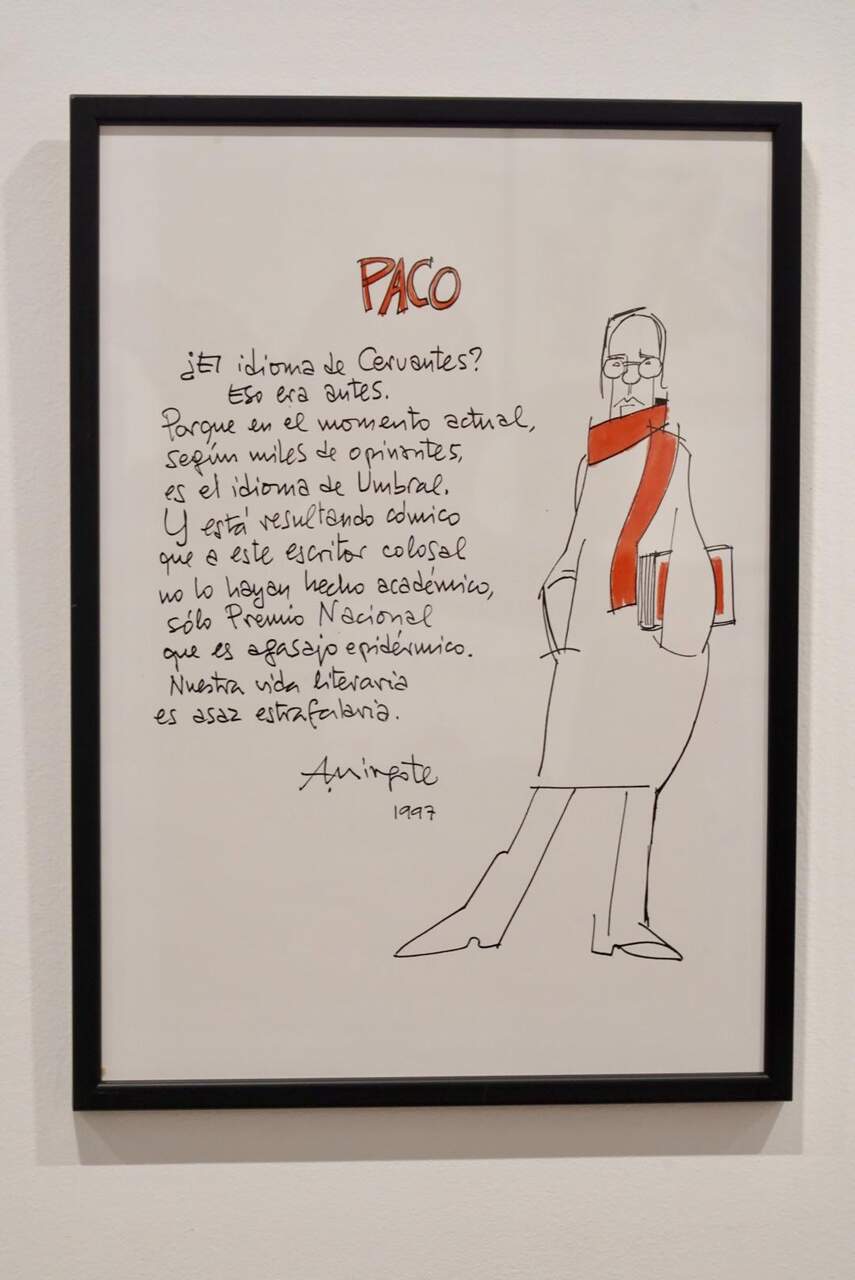 PACO
¿El idioma de Cervantes?
Eso era antes.
Porque en el momento actual,
según miles de opinantes,
es el idioma de Umbral.
Y está resultando cómico
que a este escritor colosal
no lo hayan hecho académico,
sólo Premio Nacional
que es agasajo epidérmico.
Nuestra vida literaria
es asaz estrafalaria.
A. Mingote
1997